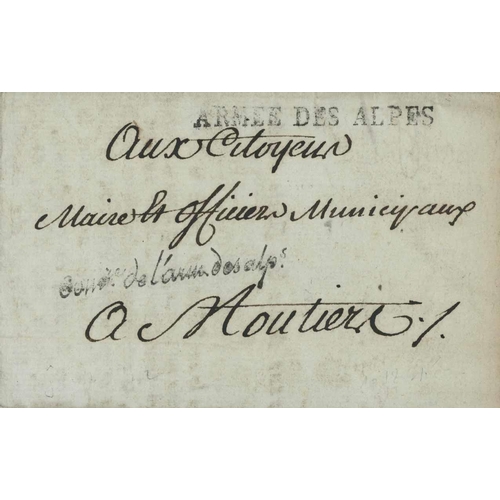 ARMÉE DES ALPES
Aux Citoyens
Maire et officiers Municipaux
de l'arm. des alp.s
A Moutiers ./.